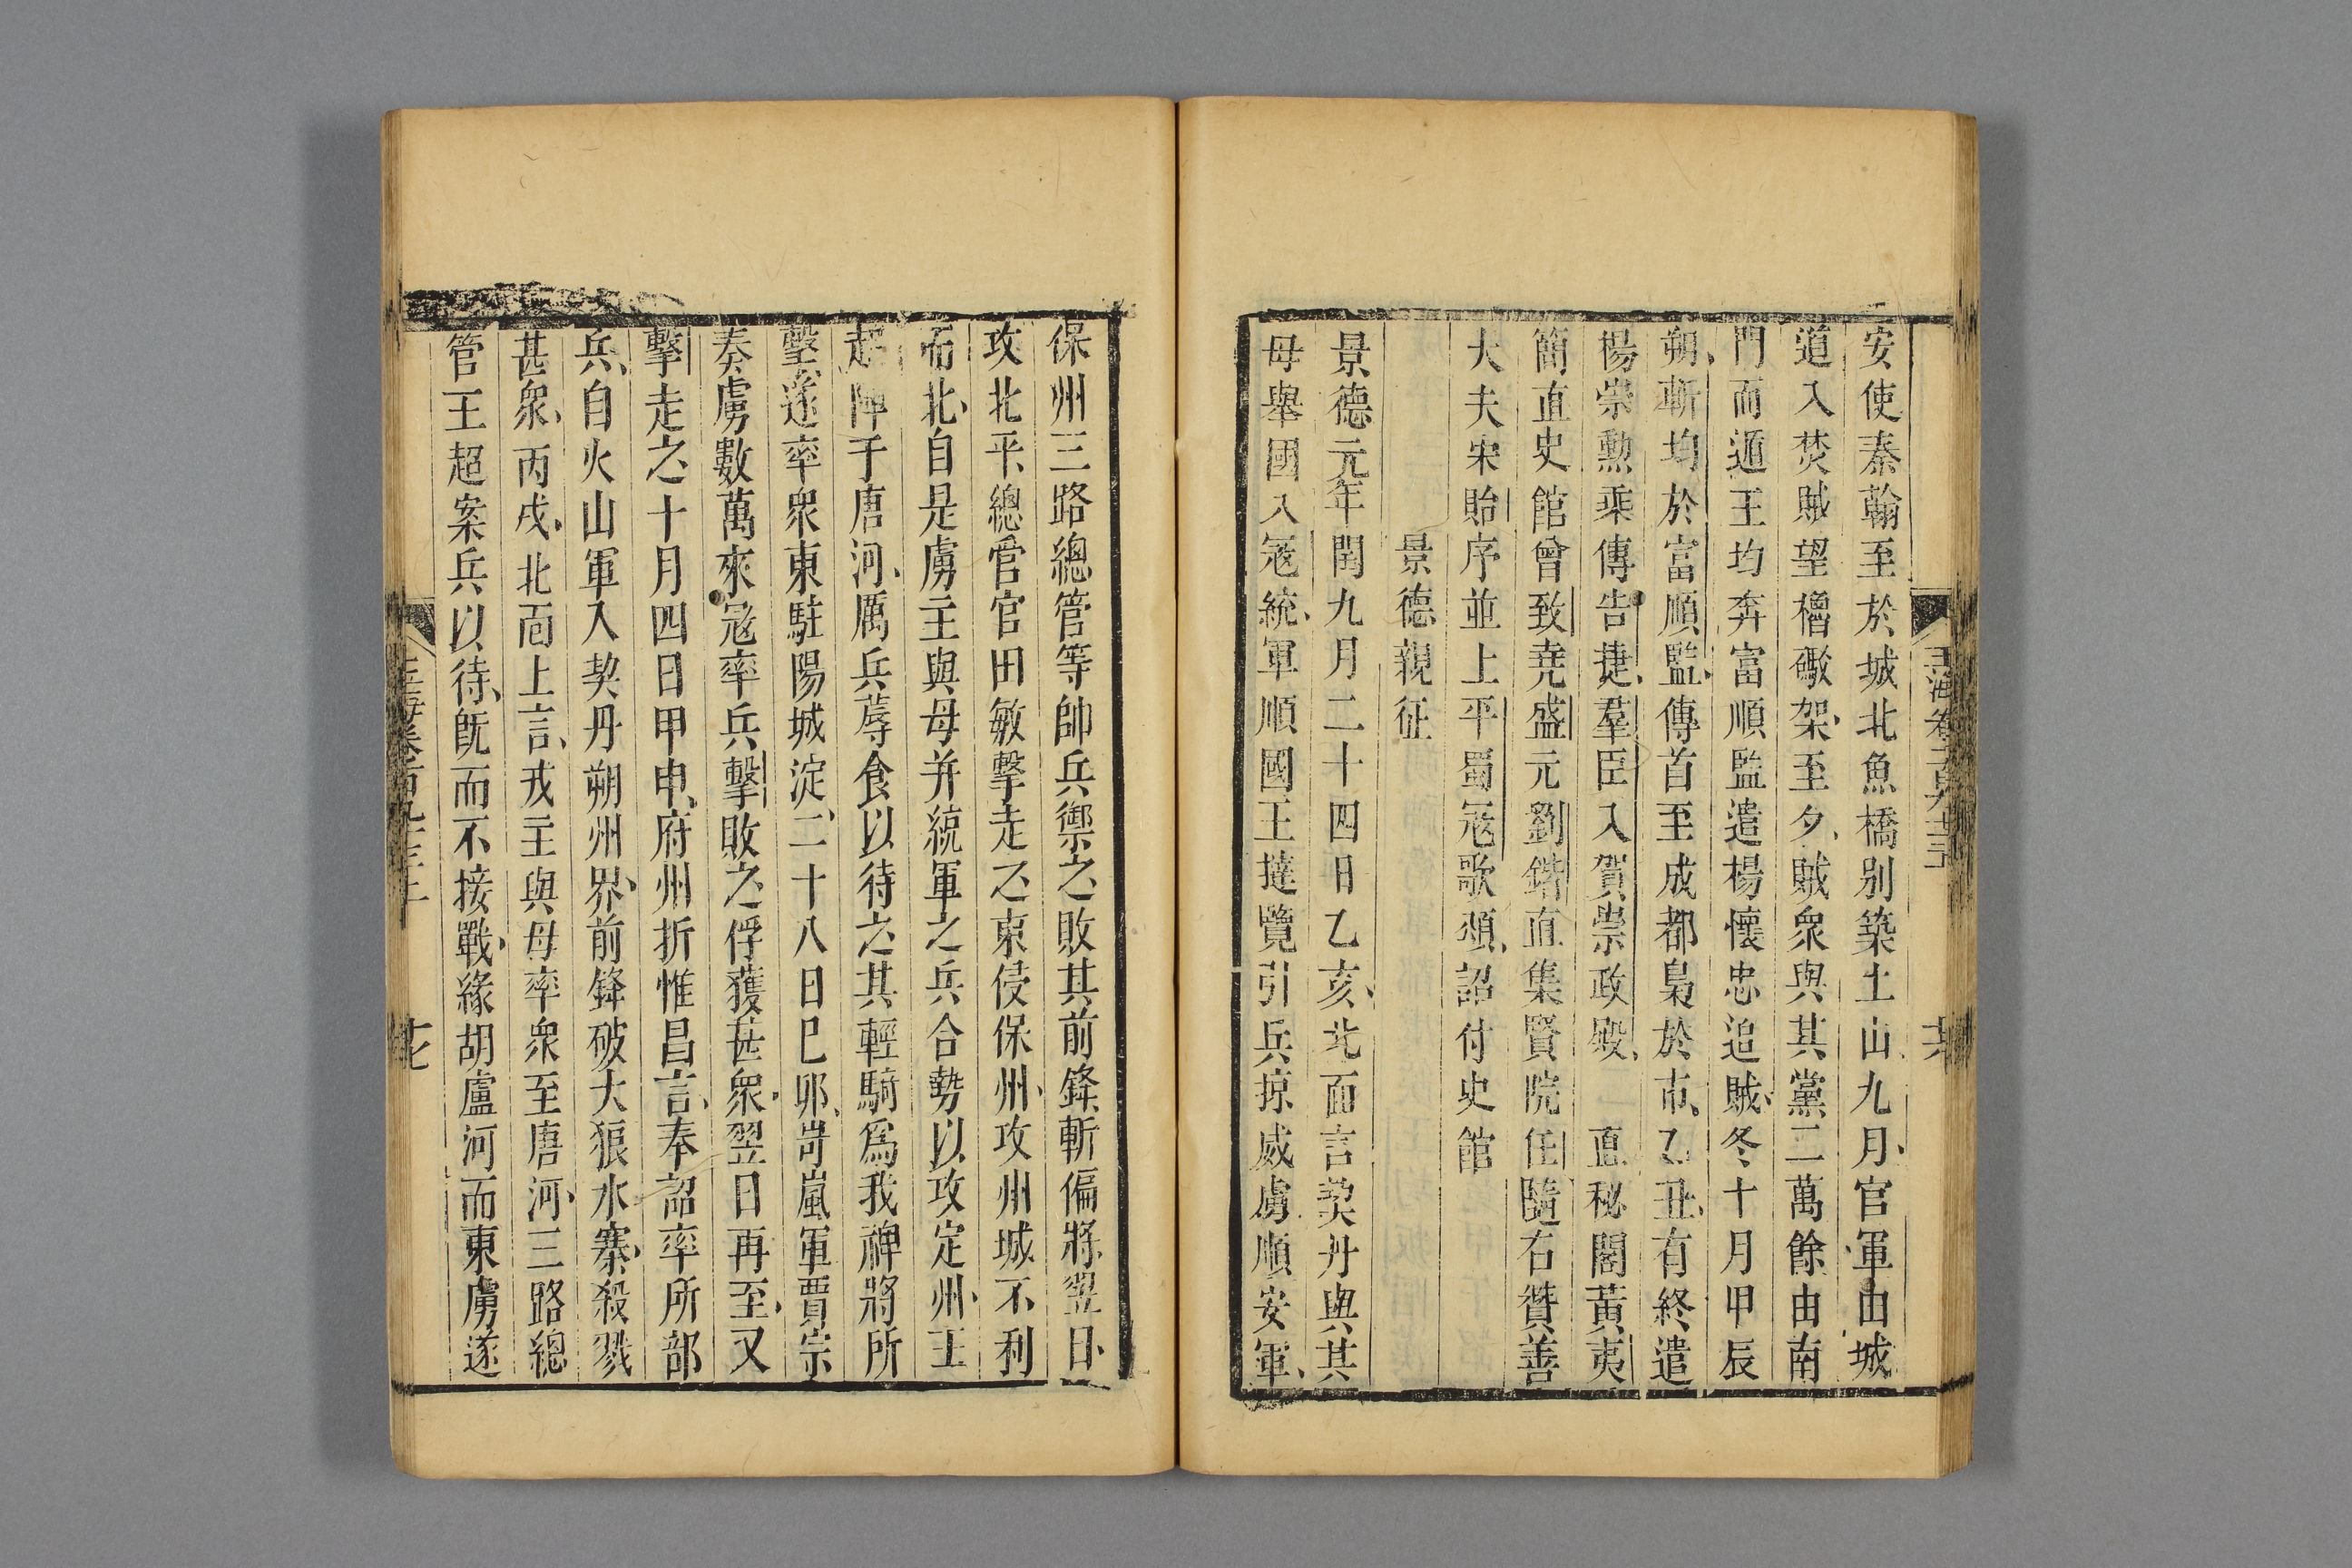 安使秦翰至於城北魚橋别築土山九月官軍由城
道入焚賊望櫓礮架至夕賊衆與其黨二萬餘由南
門而遁王均奔富順監遣楊懷忠追賊冬十月甲辰
朔斬均於富順監傳首至成都梟於市乙丑有終遣
楊崇勲乘傳告捷羣臣入賀崇政殿 直秘閣黃夷
簡直史館曾致堯盛元劉鍇直集賢院任隨右贊善
大夫宋貽序並上平蜀冦歌頌詔付史館
景德親征
景德元年閏九月二十四日乙亥北面言契丹與其
母舉國入冦統軍順國王撻覽引兵掠威虜順安軍
保州三路總管等帥兵禦之敗其前鋒斬偏將翌日
攻北平總管官田敏擊走之東侵保州攻州城不利
而北自是虜主與母并統軍之兵合勢以攻定州王
超陣于唐河厲兵蓐食以待之其輕騎爲我禆將所
擊遂率衆東駐陽城淀二十八日巳卯岢嵐軍賈宗
奏虜數萬來冦率兵擊敗之俘獲甚衆翌日再至又
擊走之十月四日甲申府州折惟昌言奉詔率所部
兵自火山軍入契丹朔州界前鋒破大狼水寨殺戮
甚衆丙戌北面上言戎主與母率衆至唐河三路總
管王超案兵以待旣而不接戰緣胡盧河而東虜遂